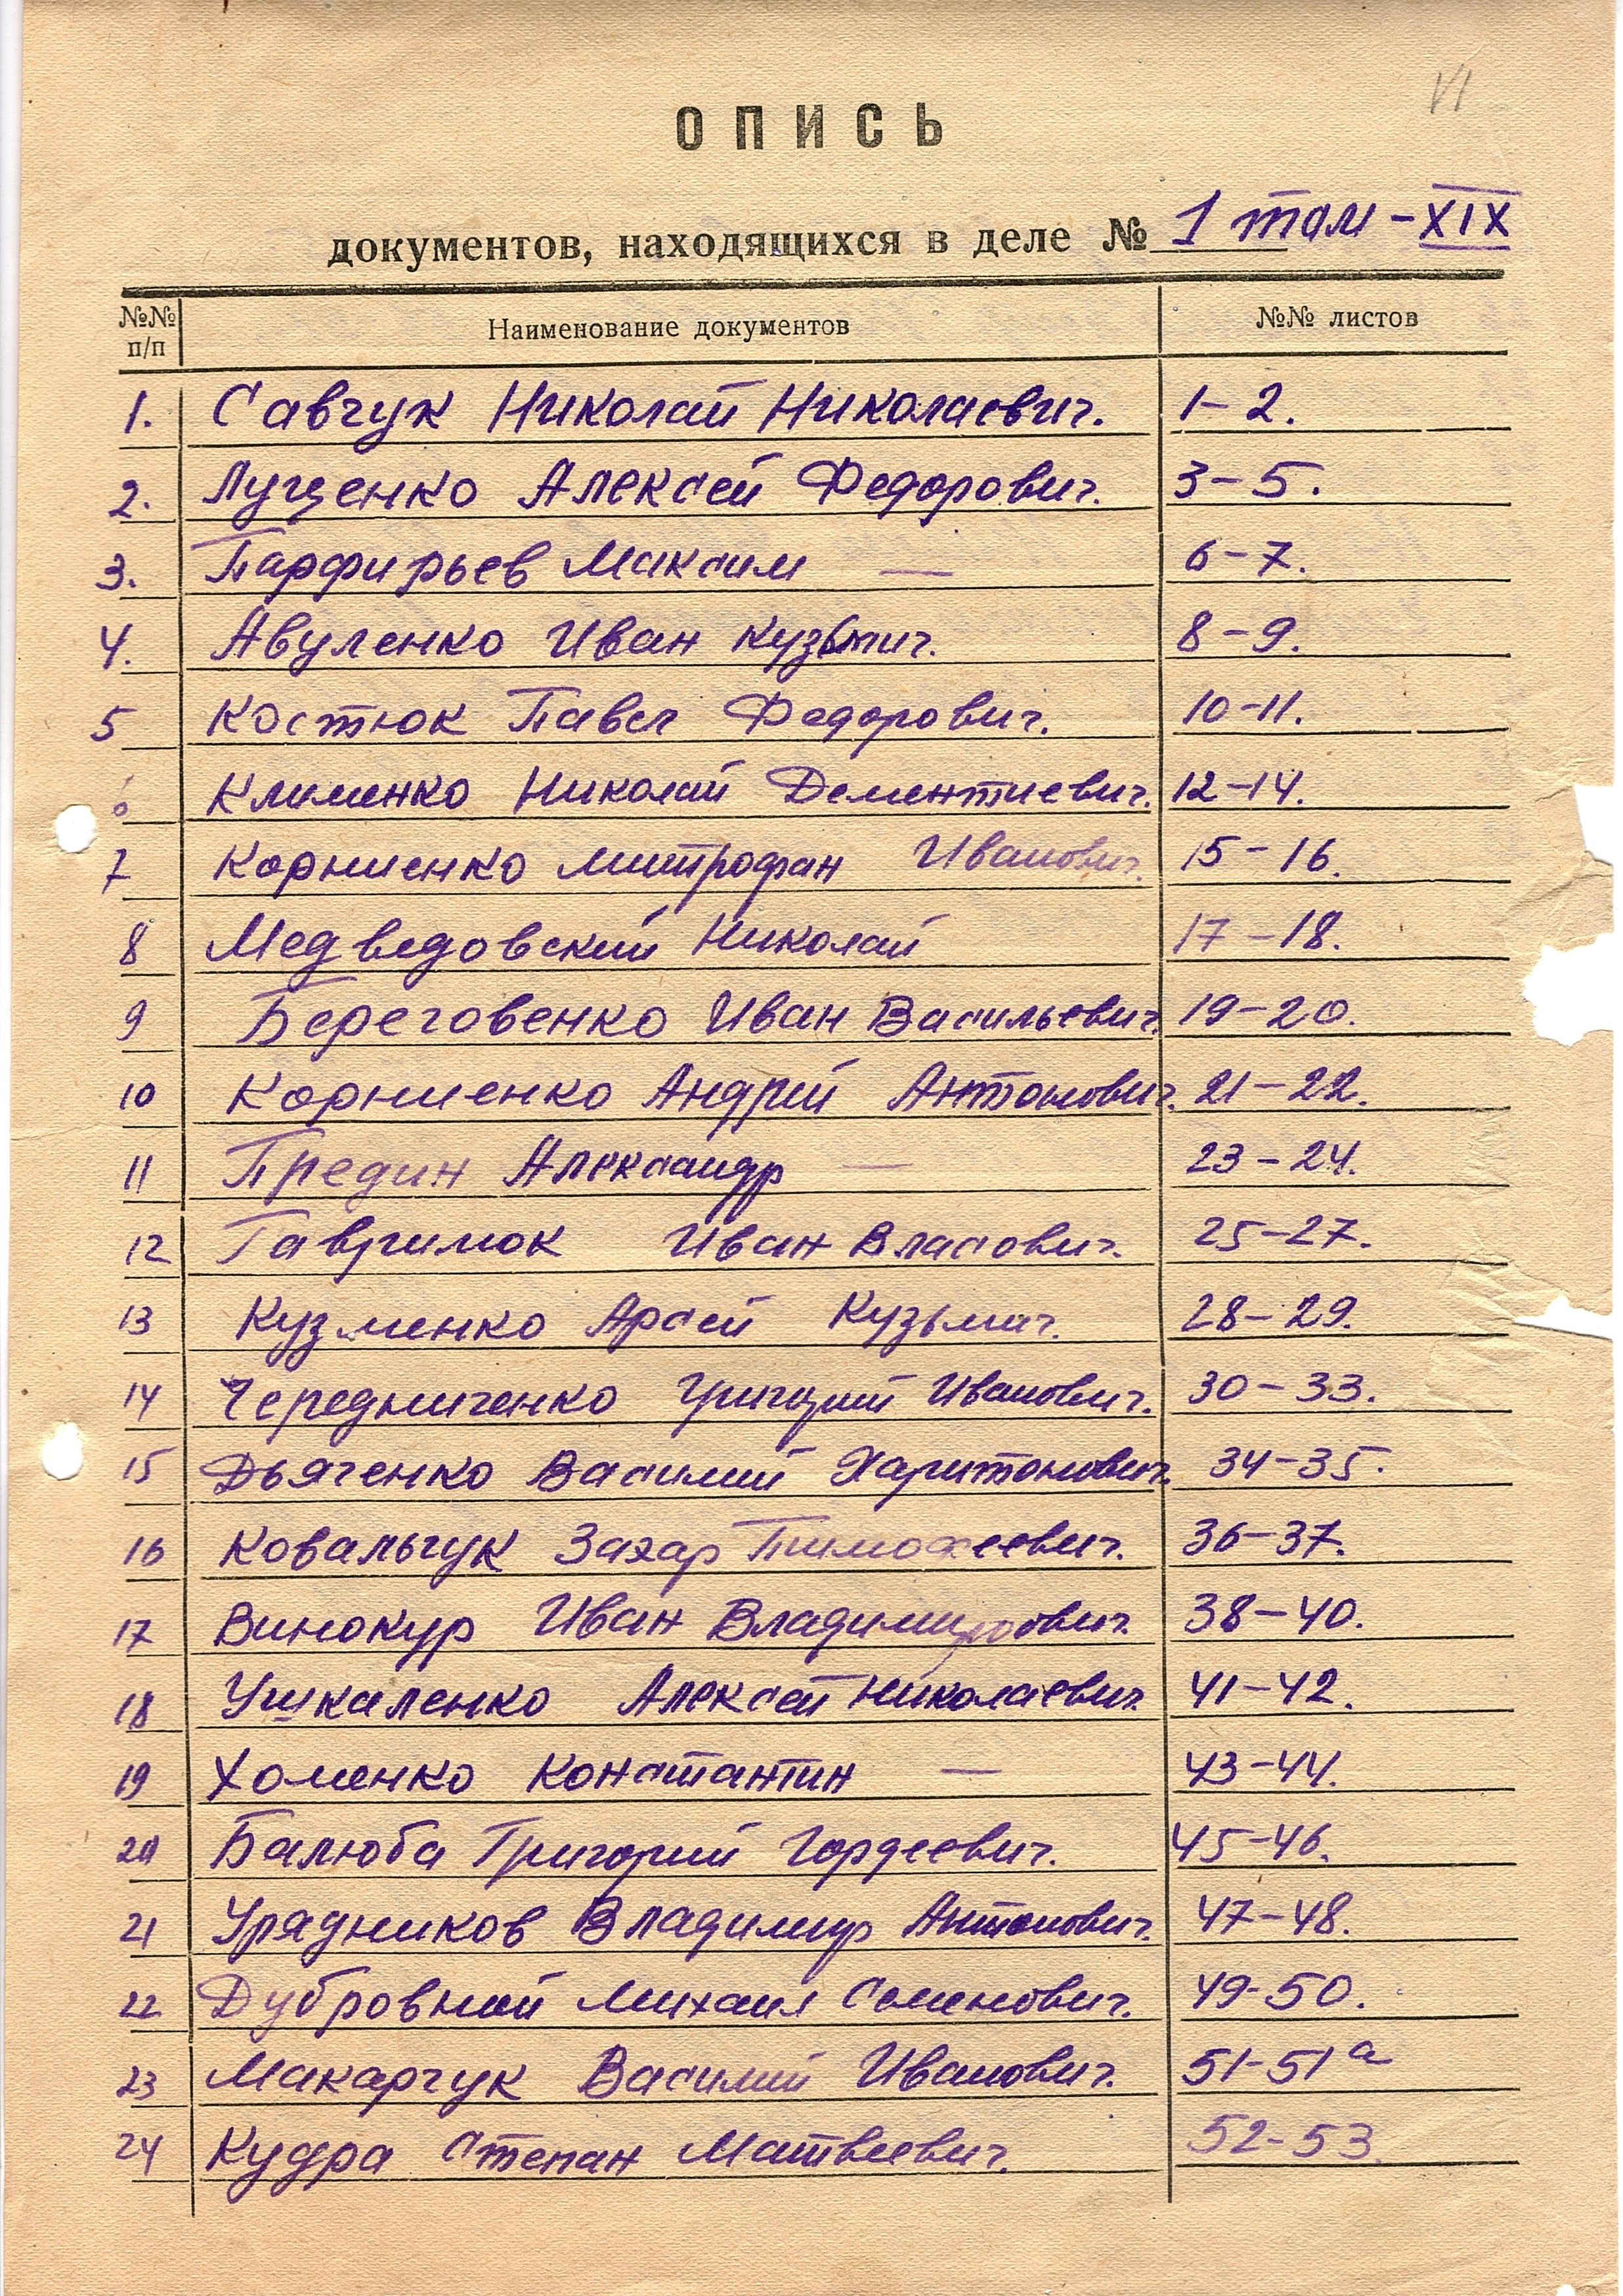 ОПИСЬ
документов, находящихся в деле № 1 том - XIX
№№ п/п Наименование документов №№ листов
1. Савчук Николай Николаевич. 1-2.
2. Лущенко Алексей Федорович. 3-5.
3. Парфирьев Максим — 6-7.
4. Авуленко Иван Кузьмич. 8-9.
5 Костюк Павел Федорович. 10-11.
6 Клименко Николай Дементиевич. 12-14.
7 Корниенко Митрофан Иванович. 15-16.
8 Медведовский Николай 17-18.
9 Береговенко Иван Васильевич. 19-20.
10 Корниенко Андрей Антонович. 21-22.
11 Предин Александр — 23-24.
12 Гаврилюк Иван Власович. 25-27.
13 Кузменко Арсей Кузьмич. 28-29.
14 Чередниченко Григорий Иванович. 30-33.
15 Дьяченко Василий Харитонович. 34-35.
16 Ковальчук Захар Тимофеевич. 36-37.
17 Винокур Иван Владимирович. 38-40.
18 Ушкаленко Алексей Николаевич 41-42.
19 Хоменко Константин — 43-44.
20 Балюба Григорий Гордеевич. 45-46.
21 Урядников Владимир Антонович. 47-48.
22 Дубровной Михаил Семенович. 49-50.
23 Макарчук Василий Иванович. 51-51а
24 Кудра Степан Матвеевич. 52-53.